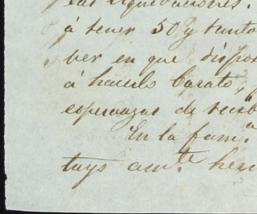 á tener 50 y tantos
ber en que dispo
á hacerlo barato,
esperanzas de recib
En la fam.ª
tuys am.te her